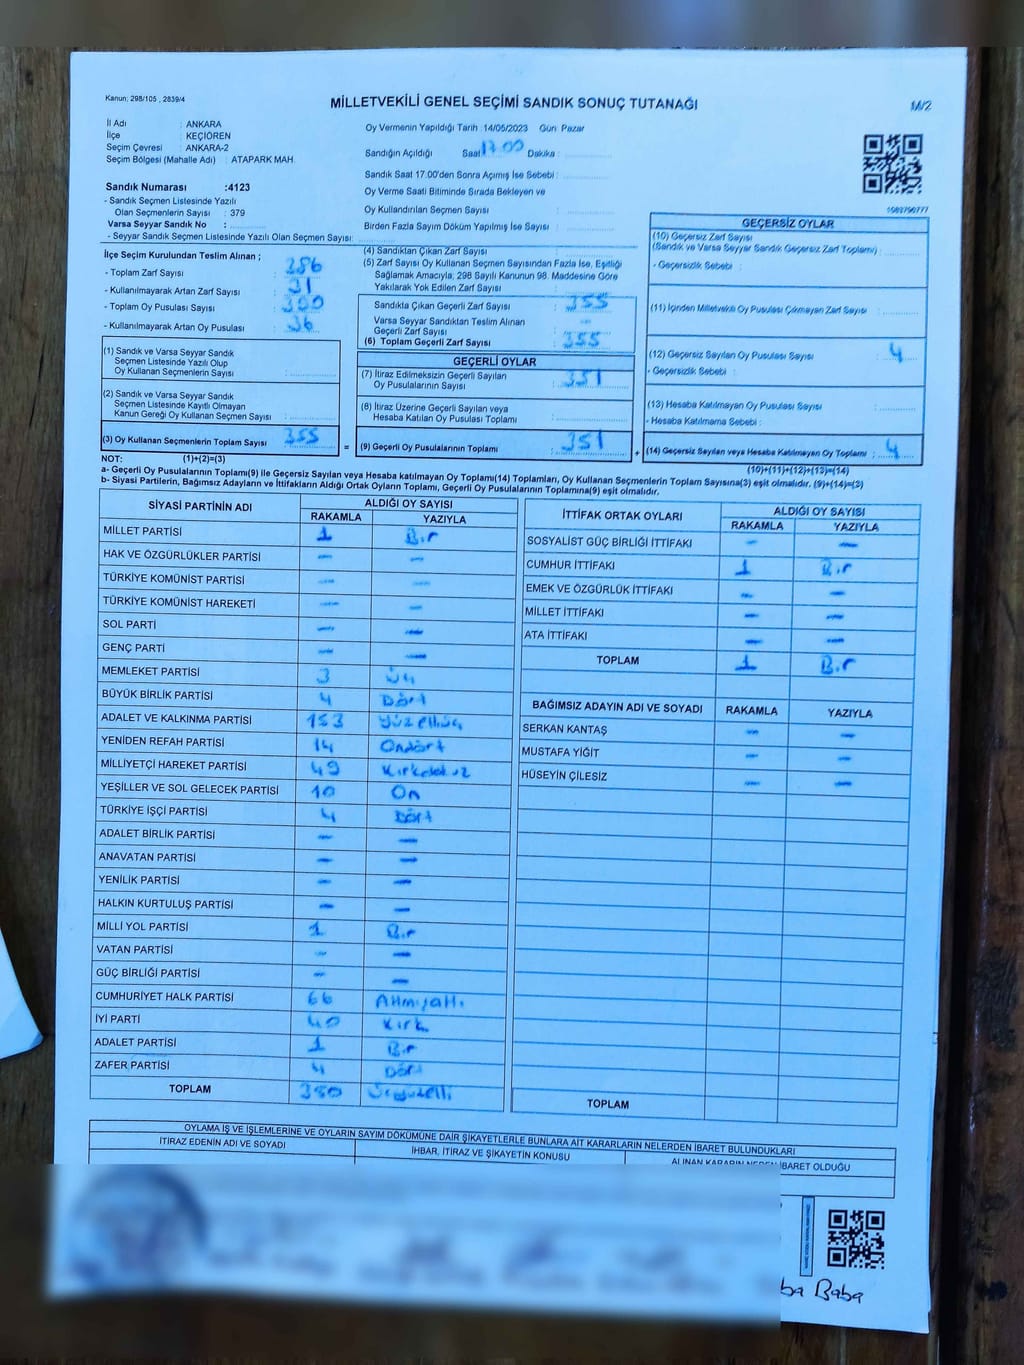 Kanun; 298/105 , 2839/4
MİLLETVEKİLİ GENEL SEÇİMİ SANDIK SONUÇ TUTANAĞI
M/2
İl Adı : ANKARA
İlçe : KEÇİÖREN
Seçim Çevresi : ANKARA-2
Seçim Bölgesi (Mahalle Adı) : ATAPARK MAH.
Oy Vermenin Yapıldığı Tarih :14/05/2023 Gün: Pazar
Sandığın Açıldığı Saat 17.00 Dakika :
Sandık Saat 17.00'den Sonra Açımış İse Sebebi :
Oy Verme Saati Bitiminde Sırada Bekleyen ve
Oy Kullandırılan Seçmen Sayısı :
Birden Fazla Sayım Döküm Yapılmış İse Sayısı :
1989796777
Sandık Numarası :4123
- Sandık Seçmen Listesinde Yazılı
Olan Seçmenlerin Sayısı : 379
Varsa Seyyar Sandık No :
- Seyyar Sandık Seçmen Listesinde Yazılı Olan Seçmen Sayısı:
İlçe Seçim Kurulundan Teslim Alınan ;
- Toplam Zarf Sayısı :
- Kullanılmayarak Artan Zarf Sayısı : 31
- Toplam Oy Pusulası Sayısı :
- Kullanılmayarak Artan Oy Pusulası : 36
(1) Sandık ve Varsa Seyyar Sandık
Seçmen Listesinde Yazılı Olup
Oy Kullanan Seçmenlerin Sayısı :
(2) Sandık ve Varsa Seyyar Sandık
Seçmen Listesinde Kayıtlı Olmayan
Kanun Gereği Oy Kullanan Seçmen Sayısı :
(3) Oy Kullanan Seçmenlerin Toplam Sayısı : 355
(4) Sandıktan Çıkan Zarf Sayısı :
(5) Zarf Sayısı Oy Kullanan Seçmen Sayısından Fazla İse, Eşitliği
Sağlamak Amacıyla, 298 Sayılı Kanunun 98. Maddesine Göre
Yakılarak Yok Edilen Zarf Sayısı :
Sandıkta Çıkan Geçerli Zarf Sayısı : 355
Varsa Seyyar Sandıktan Teslim Alınan
Geçerli Zarf Sayısı : -
(6) Toplam Geçerli Zarf Sayısı : 355
GEÇERLİ OYLAR
(7) İtiraz Edilmeksizin Geçerli Sayılan
Oy Pusulalarının Sayısı : 351
(8) İtiraz Üzerine Geçerli Sayılan veya
Hesaba Katılan Oy Pusulası Toplamı :
= (9) Geçerli Oy Pusulalarının Toplamı : 351
GEÇERSİZ OYLAR
(10) Geçersiz Zarf Sayısı
(Sandık ve Varsa Seyyar Sandık Geçersiz Zarf Toplamı) :
- Geçersizlik Sebebi :
(11) İçinden Milletvekili Oy Pusulası Çıkmayan Zarf Sayısı :
(12) Geçersiz Sayılan Oy Pusulası Sayısı : 4
- Geçersizlik Sebebi :
(13) Hesaba Katılmayan Oy Pusulası Sayısı :
- Hesaba Katılmama Sebebi :
+ (14) Geçersiz Sayılan veya Hesaba Katılmayan Oy Toplamı : 4
NOT: (1)+(2)=(3)
(10)+(11)+(12)+(13)=(14)
a- Geçerli Oy Pusulalarının Toplamı(9) ile Geçersiz Sayılan veya Hesaba katılmayan Oy Toplamı(14) Toplamları, Oy Kullanan Seçmenlerin Toplam Sayısına(3) eşit olmalıdır. (9)+(14)=(3)
b- Siyasi Partilerin, Bağımsız Adayların ve İttifakların Aldığı Ortak Oyların Toplamı, Geçerli Oy Pusulalarının Toplamına(9) eşit olmalıdır.
SİYASİ PARTİNİN ADI ALDIĞI OY SAYISI
RAKAMLA YAZIYLA
MİLLET PARTİSİ 1 Bir
HAK VE ÖZGÜRLÜKLER PARTİSİ - -
TÜRKİYE KOMÜNİST PARTİSİ - -
TÜRKİYE KOMÜNİST HAREKETİ - -
SOL PARTİ - -
GENÇ PARTİ - -
MEMLEKET PARTİSİ 3 Üç
BÜYÜK BİRLİK PARTİSİ 4 Dört
ADALET VE KALKINMA PARTİSİ 153 Yüzelliüç
YENİDEN REFAH PARTİSİ 14 Ondört
MİLLİYETÇİ HAREKET PARTİSİ 49 Kırkdokuz
YEŞİLLER VE SOL GELECEK PARTİSİ 10 On
TÜRKİYE İŞÇİ PARTİSİ 4 Dört
ADALET BİRLİK PARTİSİ - -
ANAVATAN PARTİSİ - -
YENİLİK PARTİSİ - -
HALKIN KURTULUŞ PARTİSİ - -
MİLLİ YOL PARTİSİ 1 Bir
VATAN PARTİSİ - -
GÜÇ BİRLİĞİ PARTİSİ - -
CUMHURİYET HALK PARTİSİ 66 Altmışaltı
İYİ PARTİ 40 Kırk
ADALET PARTİSİ 1 Bir
ZAFER PARTİSİ 4 Dört
TOPLAM 350 Üçyüzelli
İTTİFAK ORTAK OYLARI ALDIĞI OY SAYISI
RAKAMLA YAZIYLA
SOSYALİST GÜÇ BİRLİĞİ İTTİFAKI - -
CUMHUR İTTİFAKI 1 Bir
EMEK VE ÖZGÜRLÜK İTTİFAKI - -
MİLLET İTTİFAKI - -
ATA İTTİFAKI - -
TOPLAM 1 Bir
BAĞIMSIZ ADAYIN ADI VE SOYADI RAKAMLA YAZIYLA
SERKAN KANTAŞ - -
MUSTAFA YİĞİT - -
HÜSEYİN ÇİLESİZ - -
TOPLAM
OYLAMA İŞ VE İŞLEMLERİNE VE OYLARIN SAYIM DÖKÜMÜNE DAİR ŞİKAYETLERLE BUNLARA AİT KARARLARIN NELERDEN İBARET BULUNDUKLARI
İTİRAZ EDENİN ADI VE SOYADI İHBAR, İTİRAZ VE ŞİKAYETİN KONUSU ALINAN KARARIN NEDEN İBARET OLDUĞU
Baba